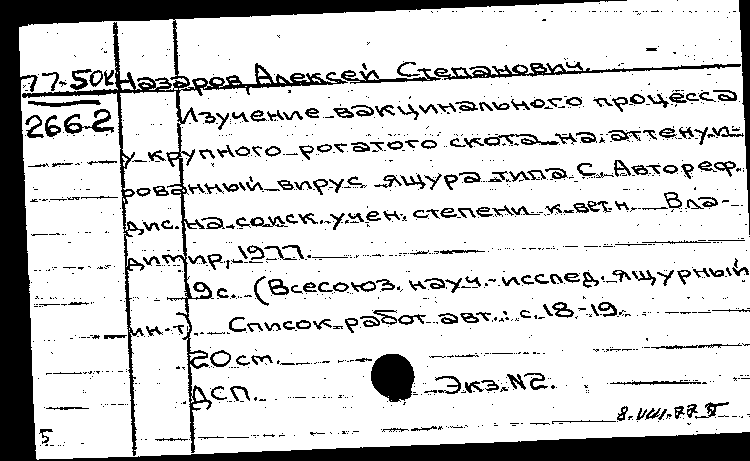 77-50к Назаров, Алексей Степанович.
266-2 Изучение вакцинального процесса
у крупного рогатого скота на аттенуи-
рованный вирус ящура типа С. Автореф.
дис. на соиск. учен. степени к. вет. н. Вла-
димир, 1977.
19 с. (Всесоюз. науч.-исслед. ящурный
ин-т). Список работ авт.: с. 18-19.
20 см.
ДСП. Экз. N2.
8.VIII.77
5